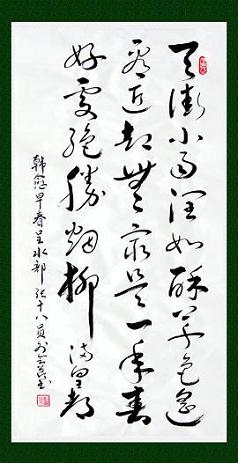 天街小雨潤如酥草色遥
看近却無最是一年春
好處絶勝烟柳滿皇都
韓愈早春呈水部張十八員外